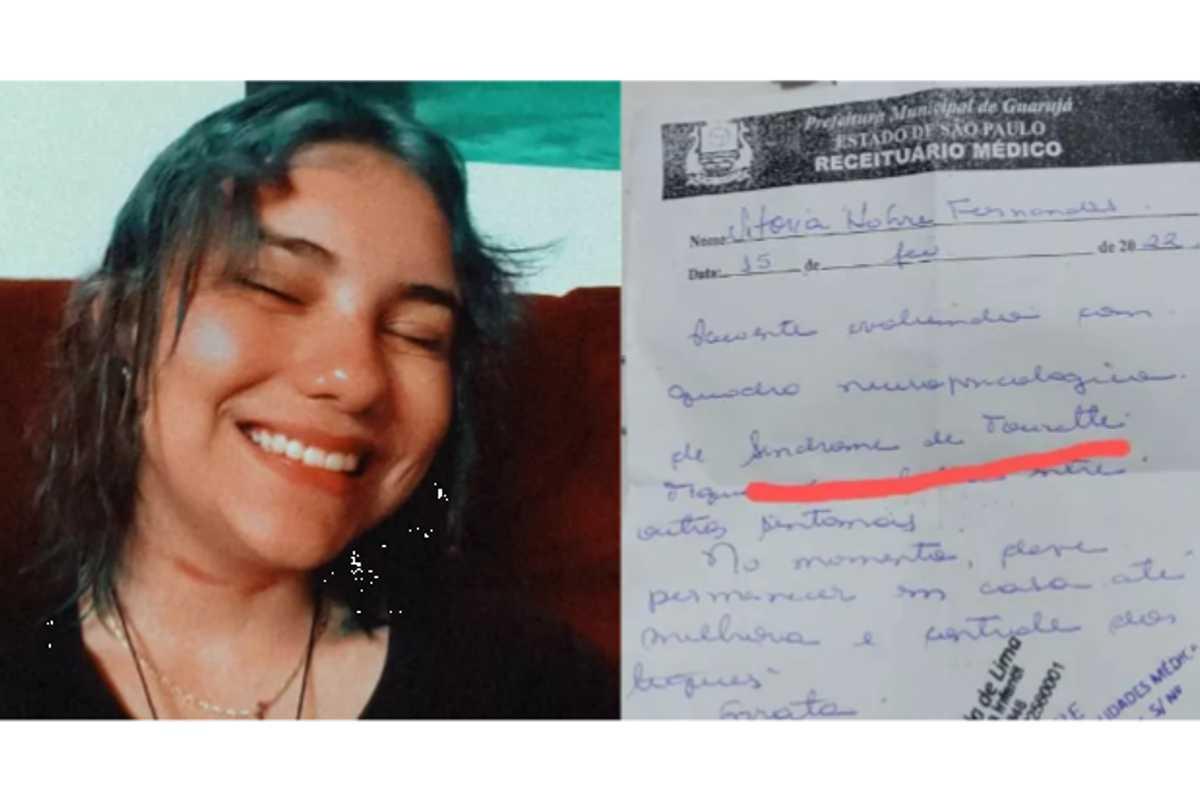 Prefeitura Municipal de Guarujá
ESTADO DE SÃO PAULO
RECEITUÁRIO MÉDICO
Nome Vitoria Nobre Fernandes.
Data: 15 de fev de 2022
Paciente evoluindo com
quadro neuropsicologico
de Sindrome de Tourette
entre
outros sintomas
No momento, deve
permanecer em casa até
melhora e controle dos
tiques
Grata
o de Lima
2560001
IDADES MÉDIC
S/Nº